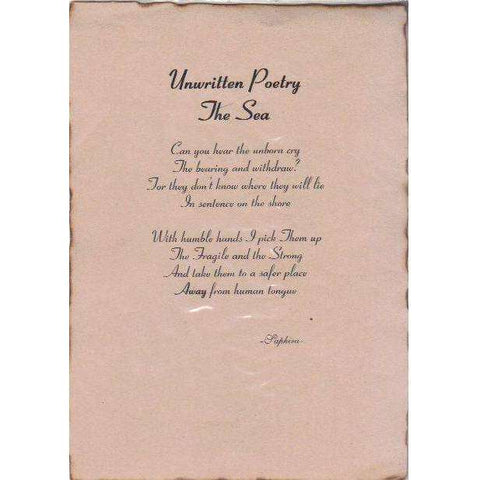 Unwritten Poetry
The Sea
Can you hear the unborn cry
The bearing and withdraw?
For they don't know where they will lie
In sentence on the shore
With humble hands I pick Them up
The Fragile and the Strong
And take them to a safer place
Away from human tongue
-Saphira-